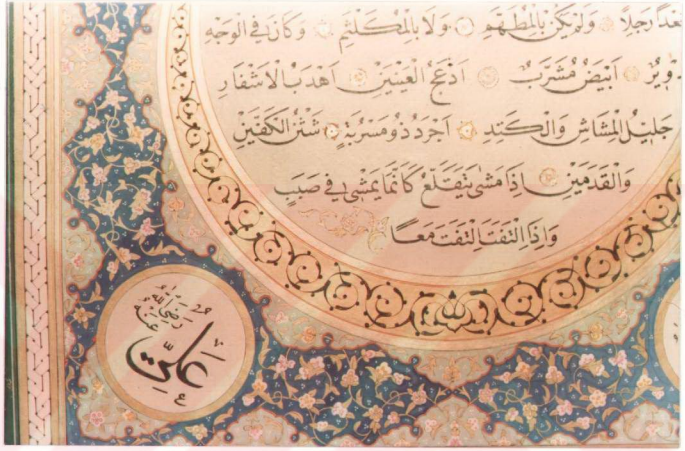 جَعْداً رَجِلاً وَلَمْ يَكُنْ بِالْمُطَهَّمِ وَلَا بِالْمُكَلْثَمِ وَكَانَ فِي الْوَجْهِ
تَدْوِيرٌ اَبْيَضُ مُشْرَبٌ اَدْعَجُ الْعَيْنَيْنِ اَهْدَبُ الْاَشْفَارِ
جَلِيلُ الْمُشَاشِ وَالْكَتَدِ اَجْرَدُ ذُو مَسْرُبَةٍ شَثْنُ الْكَفَّيْنِ
وَالْقَدَمَيْنِ اِذَا مَشٰى يَتَقَلَّعُ كَاَنَّمَا يَمْشِي فِي صَبَبٍ
وَاِذَا الْتَفَتَ الْتَفَتَ مَعاً
عَلِيّ
رَضِيَ اللهُ عَنْهُ